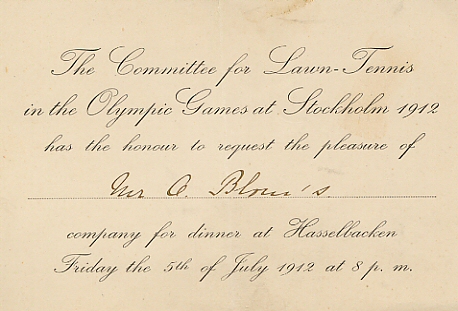 The Committee for Lawn-Tennis
in the Olympic Games at Stockholm 1912
has the honour to request the pleasure of
Mr O. Blom's
company for dinner at Hasselbacken
Friday the 5th of July 1912 at 8 p. m.